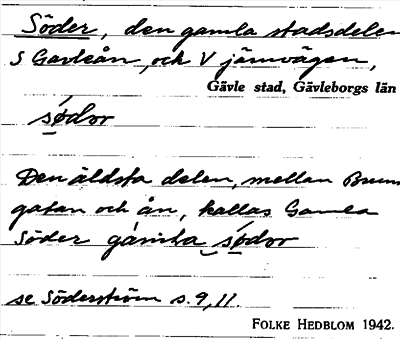 Söder, den gamla stadsdelen
S Gavleån, och V järnvägen,
Gävle stad, Gävleborgs län
södor
Den äldsta delen, mellan Brunns
gatan och ån, kallas Gamla
Söder gámḷa södor
se Söderström s. 9, 11.
FOLKE HEDBLOM 1942.